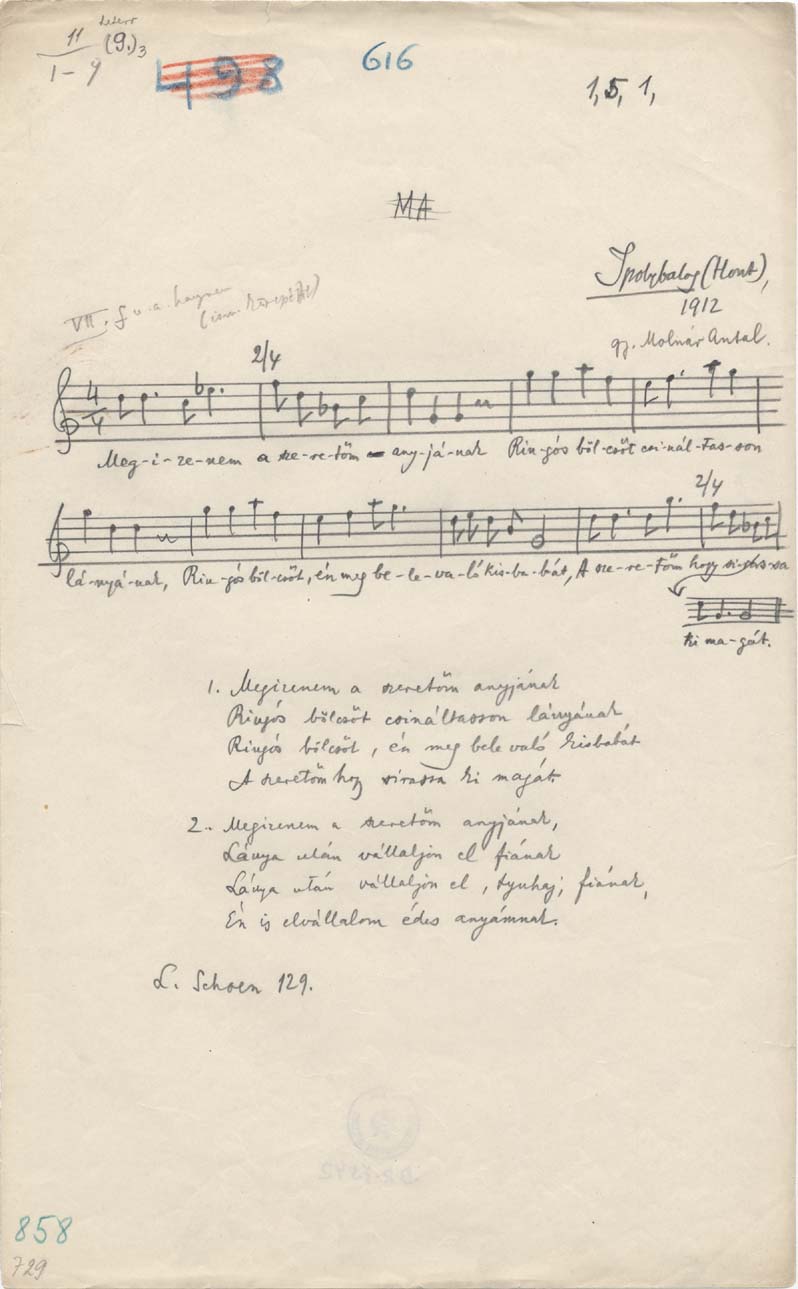 11 (9.)3
1-9
498
616
1, 5, 1,
MA
Ipolybalog (Hont),
1912
gy. Molnár Antal.
VII. f u. a.
2/4
4/4
Meg-i-ze-nem a sze-re-töm any-já-nak Rin-gós böl-csöt csi-nál-tas-son
2/4
lá-nyá-nak, Rin-gós böl-csöt, én meg be-le-va-ló kis-ba-bát, A sze-re-töm hogy si-rass-sa
ki ma-gát.
1. Megizenem a szeretöm anyjának
Ringós bölcsöt csináltasson lányának
Ringós bölcsöt, én meg bele való kisbabát
A szeretöm hogy sirassa ki magát.
2. Megizenem a szeretöm anyjának,
Lánya után vállaljon el fiának
Lánya után vállaljon el, tyuhaj, fiának,
Én is elvállalom édes anyámnak.
L. Schoen 129.
858
729